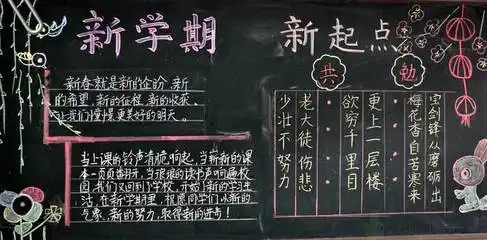 新学期
新起点
新春就是新的企盼、新
的希望、新的征程、新的收获、
让我们憧憬更美好的明天。
当上课的铃声清脆响起,当崭新的课
本一页页翻开,当琅琅的读书声响遍校
园,我们又回到了学校,开始了新的学习生
活,在新学期里,祝愿同学们以新的
气象、新的努力,取得新的进步!
共勉
宝剑锋从磨砺出
梅花香自苦寒来
更上一层楼
欲穷千里目
老大徒伤悲
少壮不努力